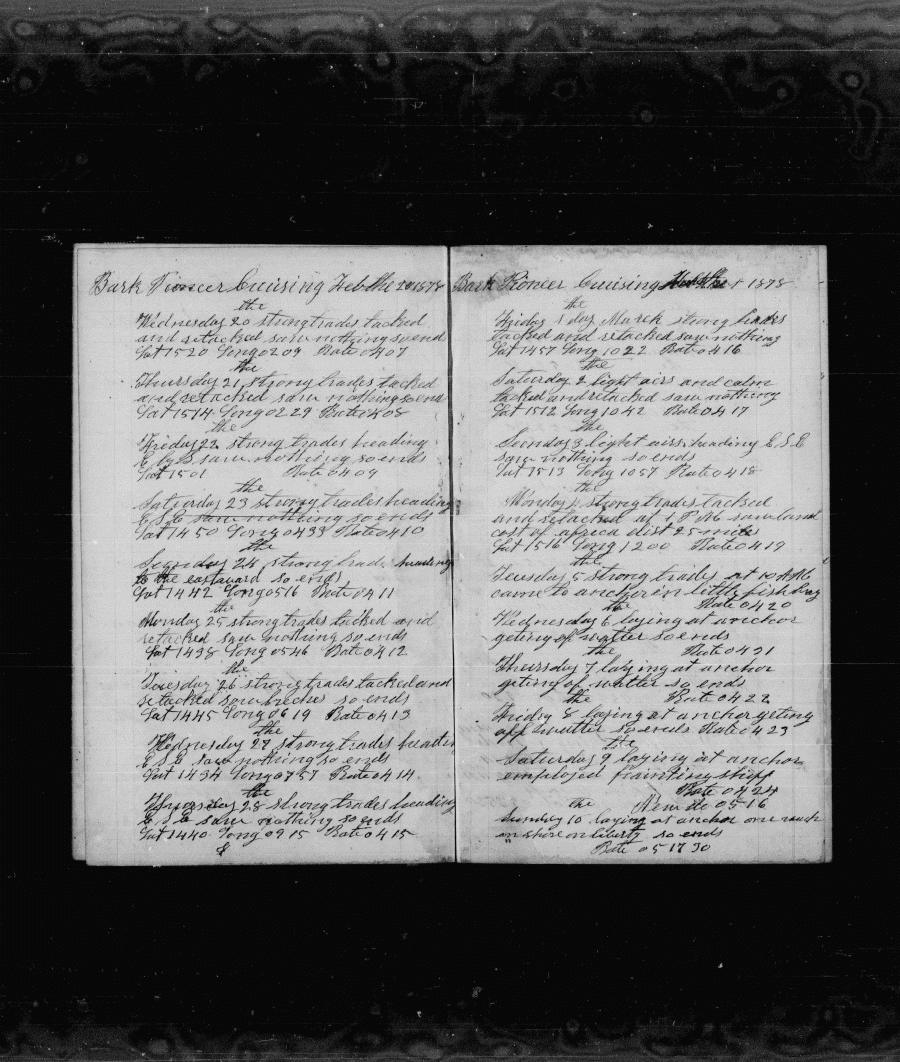 Bark Pioneer Cuising Feb the 20 1878
the
Wednesday 20 strong trades tacked
and retacked saw nothing so end
Lat 1520 Long 0209 Rate 0407
the
Thursday 21 strong trades tacked
and retacked saw nothing so end
Lat 1514 Long 0229 Rate 0408
the
Friday 22 strong trades heading
E by S saw nothing so ends
Lat 1501 Rate 0409
the
Saturday 23 strong trades heading
E S E saw nothing so ends
Lat 1450 Long 0433 Rate 0410
the
Sunday 24 strong trade heading
to the eastward so ends
Lat 1442 Long 0516 Rate 0411
the
Monday 25 strong trades tacked and
retacked saw nothing so ends
Lat 1438 Long 0546 Rate 0412
the
Tuesday 26 strong trades tacked and
retacked saw breches so ends
Lat 1445 Long 0619 Rate 0413
the
Wednesday 27 strong trades headin
E S E saw nothing so ends
Lat 1434 Long 0757 Rate 0414
the
Thursday 28 strong trades heading
E S E saw nothing so ends
Lat 1440 Long 0915 Rate 0415
Bark Pioneer Cuising 1 1878
the
Friday 1 day March strong trades
tacked and retacked saw nothing
Lat 1457 Long 1022 Rate 0416
the
Saturday 2 light airs and calm
tacked and retacked saw nothing
Lat 1512 Long 1042 Rate 0417
the
Sunday 3 light airs heading E S E
saw nothing so ends
Lat 1513 Long 1057 Rate 0418
the
Monday 4 strong trades tacked
and retacked at 1 P M saw land
cost of africa dist 25 miles
Lat 1516 Long 1200 Rate 0419
the
Teusday 5 strong trades at 10 A M
came to anchor in little fish bay
the Rate 0420
Wednesday 6 laying at anchor
geting of watter so ends
the Rate 0421
Thursday 7 laying at anchor
geting of watter so ends
the Rate 0422
Friday 8 laying at anchor geting
off watter so ends Rate 0423
the
Saturday 9 laying at anchor
employed painting ship
Rate 0424
the New do 0516
Sunday 10 laying at anchor one wach
on shore on liberty so ends
Rate 0517 30